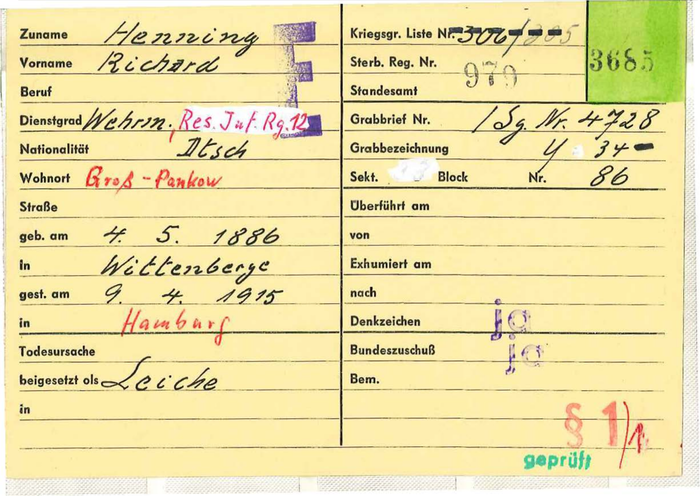 Zuname Henning
Vorname Richard
Beruf
Dienstgrad Wehrm., Res. Inf. Rg. 12
Nationalität Dtsch
Wohnort Groß-Pankow
Straße
geb. am 4. 5. 1886
in Wittenberge
gest. am 9. 4. 1915
in Hamburg
Todesursache
beigesetzt als Leiche
in
E
Kriegsgr. Liste Nr. 306/305
Sterb. Reg. Nr. 979
Standesamt
3685
Grabbrief Nr. / Sg. Nr. 4728
Grabbezeichnung 34
Sekt. Block Nr. 86
Überführt am
von
Exhumiert am
nach
Denkzeichen ja
Bundeszuschuß ja
Bem.
§ 1/1
geprüft